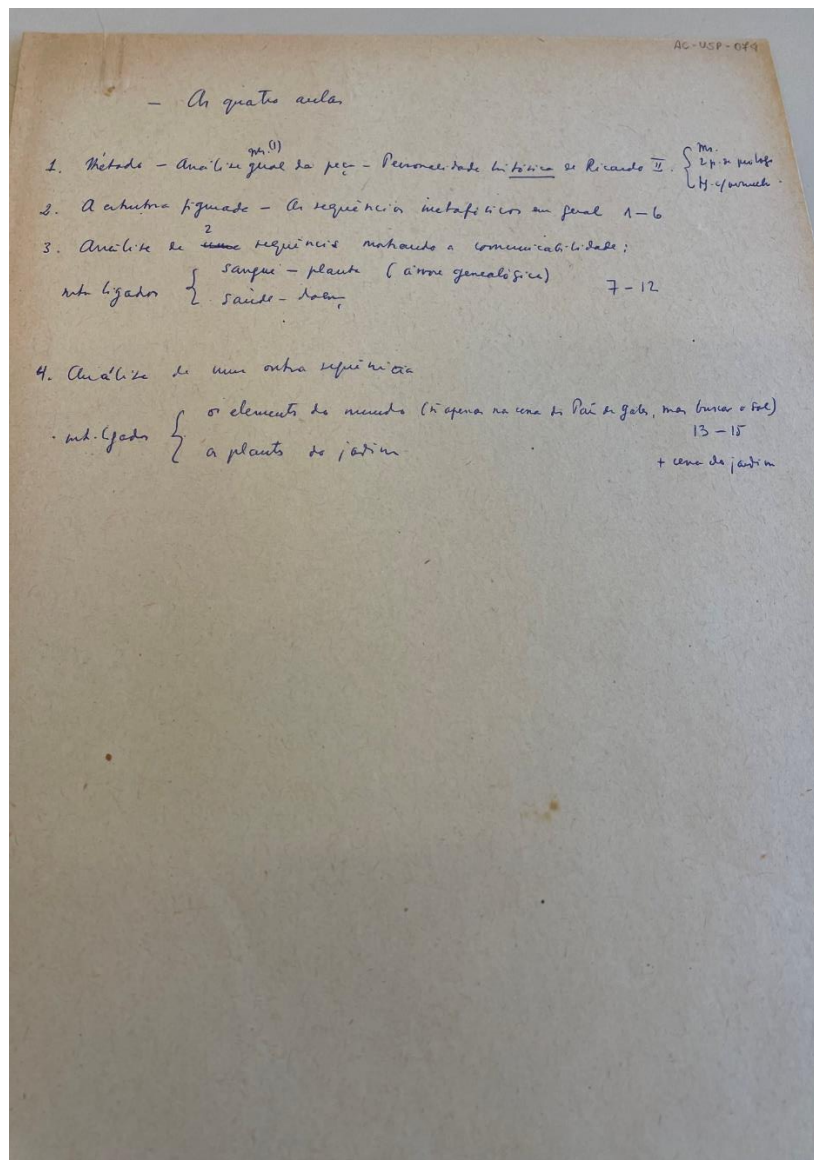 AC-USP-079
— As quatro aulas
1. Método – Análise geral da peça – Personalidade histórica de Ricardo II.
2. A estrutura figurada – As sequências metafóricas em geral 1–6
3. Análise de 2 sequências mostrando a comunicabilidade:
ligados { sangue – planta (árvore genealógica)
saúde – doença 7–12
4. Análise de uma outra sequência
ligados { os elementos do mundo (ñ apenas na cena do País de Gales, mas buscar o sol)
13–15
a planta do jardim
+ cena do jardim